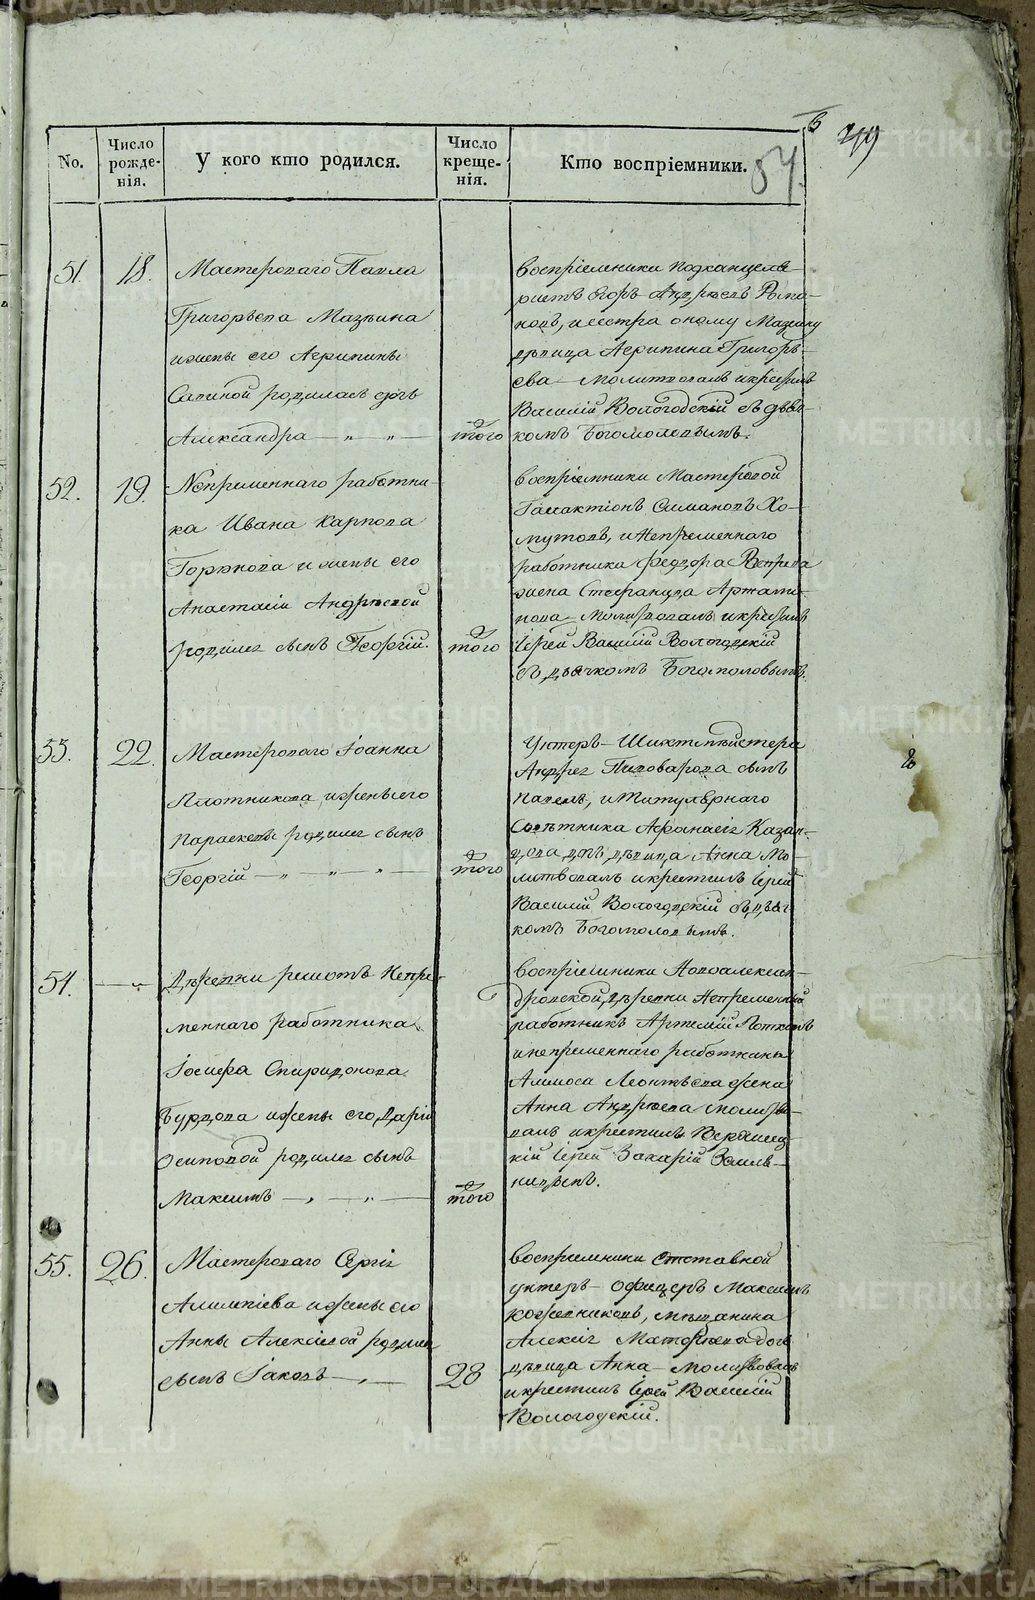 No.
Число рожде- нія.
У кого кто родился.
Число креще- нія.
Кто воспріемники.
84.
51.
18.
Мастероваго Павла
Григорьева Мазьина
и жены его Агрипины
Савиной родилась дочь
Александра — „ — „ —
того
воспріемники подканцеля-
ристъ Егоръ Андреевъ Рома-
новъ, и сестра оному Мазину
девица Агрипина Григорь-
ева — Молитвовалъ и крестилъ
Василій Вологодскій съ дьяч-
комъ Богомоловымъ.
52.
19.
Непременнаго работни-
ка Ивана Карпова
и жены его
Анастасіи Андреевой
родился сынъ Георгій.
того
воспріемники Мастеровой
Галактіонъ Симановъ Хо-
мутовъ, и Непременнаго
работника Федора
жена Стефанида Артами-
нова — Молитвовалъ и крестилъ
Іерей Василій Вологодскій
съ дьячкомъ Богомоловымъ.
53.
22.
Мастероваго Іоанна
Плотникова, и жены его
Параскевы родился сынъ
Георгій — „ — „ — „ —
того
Унтеръ — Шихтмейстера
Андрея Пивоварова сынъ
Павелъ, и Титулярнаго
Советника Афанасія Казан-
цова дочь девица Анна Мо-
литвовалъ и крестилъ Іерей
Василій Вологодскій съ дьяч-
комъ Богомоловымъ.
54.
— „ —
Деревни решотъ Непре-
меннаго работника
Іосифа Спиридонова
Бурдова и жены его Даріи
Осиповой родился сынъ
Максимъ — „ — „ —
того
воспріемники Новоалексан-
дровской деревни Непременный
работникъ Артемій
и непременнаго работника
Аммоса Леонтьева жена
Анна Андреева молитво-
валъ и крестилъ
кій Іерей Захарій
55.
26.
Мастероваго Сергія
Алимпіева и жены его
Анны Алексіевой родился
сынъ Іаковъ — „ —
28
воспріемники отставной
унтеръ — офицеръ Максимъ
Кожевниковъ, мещанина
Алексія Матфеева дочь
девица Анна — молитвовалъ
и крестилъ Іерей Василій
Вологодскій.
METRIKI.GASO-URAL.RU